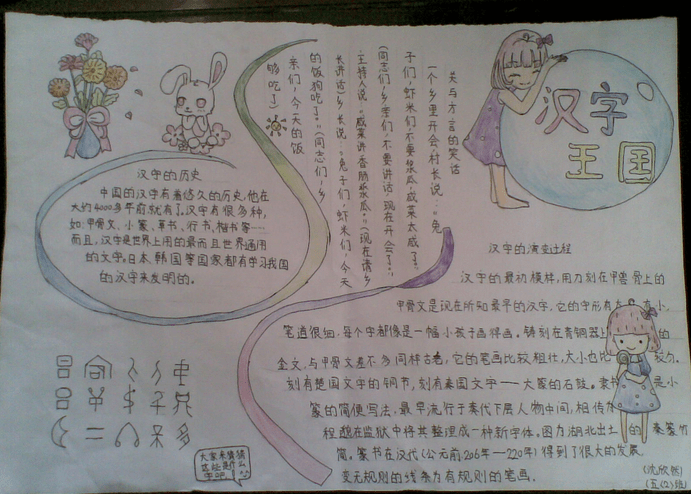 汉字
王国
关与方言的笑话
一个乡里开会,村长说:“兔
子们,虾米们,不要浆瓜,咸菜太咸了.”
(同志们,乡亲们,不要讲话,现在开会了.)
主持人说:“咸菜请香肠浆瓜.”(现在请乡
长讲话)乡长说:“兔子们,虾米们,今天
的饭狗吃了.”(同志们,乡
亲们,今天的饭
够吃了)
汉字的历史
中国的汉字有着悠久的历史,他在
大约4000多年前就有了,汉字有很多种,
如:甲骨文、小篆、草书、行书、楷书等…
而且,汉字是世界上用的最而且世界通用
的文字,日本、韩国等国家都有学习我国
的汉字来发明的。
汉字的演变过程
汉字的最初模样,用刀刻在甲兽骨上的
甲骨文是现在所知最早的汉字,它的字形有 有小,
笔道很细,每个字都像是一幅小孩子画得画。铸刻在青铜器上 的
金文,与甲骨文差不多同样古老,它的笔画比较粗壮,大小也比 较匀。
刻有楚国文字的铜节,刻有秦国文字——大篆的石鼓。 是小
篆的简便写法,最早流行于秦代下层人物中间,相传
程邈在监狱中将其整理成一种新字体。图为湖北出土的 秦篆竹
简。篆书在汉代(公元前206年—220年)得到了很大的发展,
变无规则的线条为有规则的笔画。
大家来猜猜
这些是什么
字吧
(沈欣然)
(五(2)班)